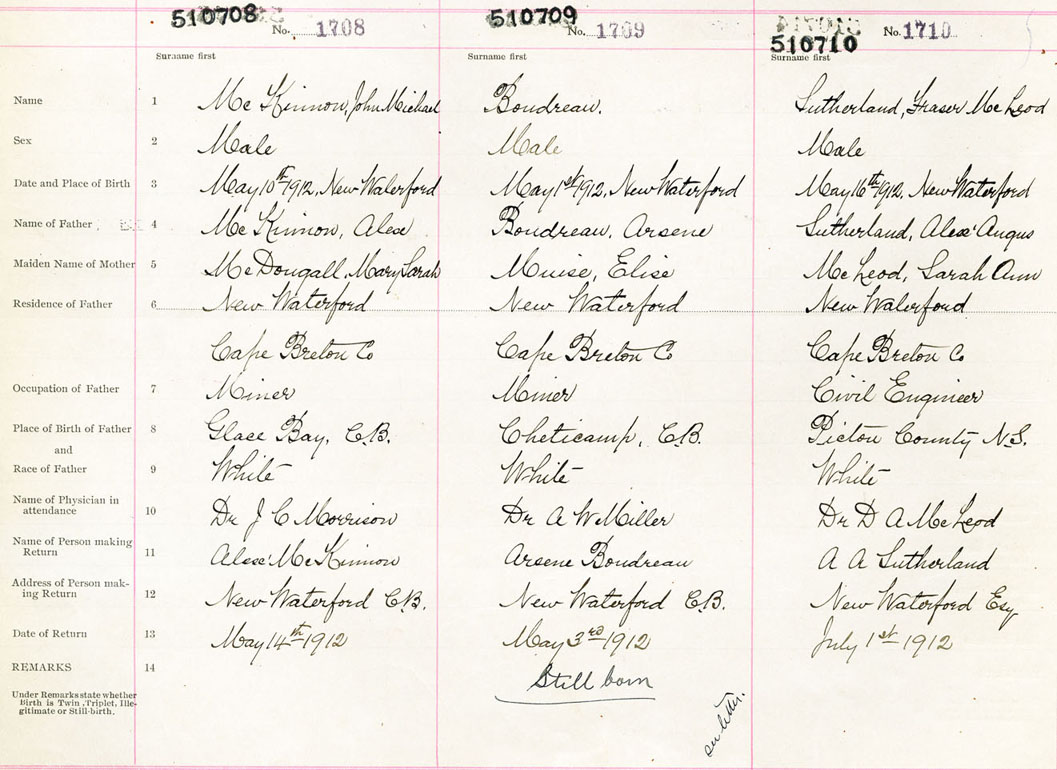 510708 510709 510710
No. 1708 No. 1709 No. 1710
Surname first Surname first Surname first
Name 1 Mc Kinnon, John Michael Boudreau. Sutherland, Fraser Mc Leod
Sex 2 Male Male Male
Date and Place of Birth 3 May 10th 1912, New Waterford May 1st 1912, New Waterford May 16th 1912, New Waterford
Name of Father 4 Mc Kinnon, Alex Boudreau, Arsene Sutherland, Alex' Angus
Maiden Name of Mother 5 Mc Dougall, Mary Sarah Muise, Elise Mc Leod, Sarah Ann
Residence of Father 6 New Waterford New Waterford New Waterford
Cape Breton Co Cape Breton Co Cape Breton Co
Occupation of Father 7 Miner Miner Civil Engineer
Place of Birth of Father 8 Glace Bay, C.B. Cheticamp, C.B. Pictou County N.S.
and
Race of Father 9 White White White
Name of Physician in
attendance 10 Dr J C Morrison Dr A W Miller Dr D A Mc Leod
Name of Person making
Return 11 Alex' Mc Kinnon Arsene Boudreau A A Sutherland
Address of Person mak-
ing Return 12 New Waterford C.B. New Waterford C.B. New Waterford Esq
Date of Return 13 May 14th 1912 May 3rd 1912 July 1st 1912
REMARKS 14 Still born
Under Remarks state whether
Birth is Twin, Triplet, Ille-
gitimate or Still-birth.
see letter.